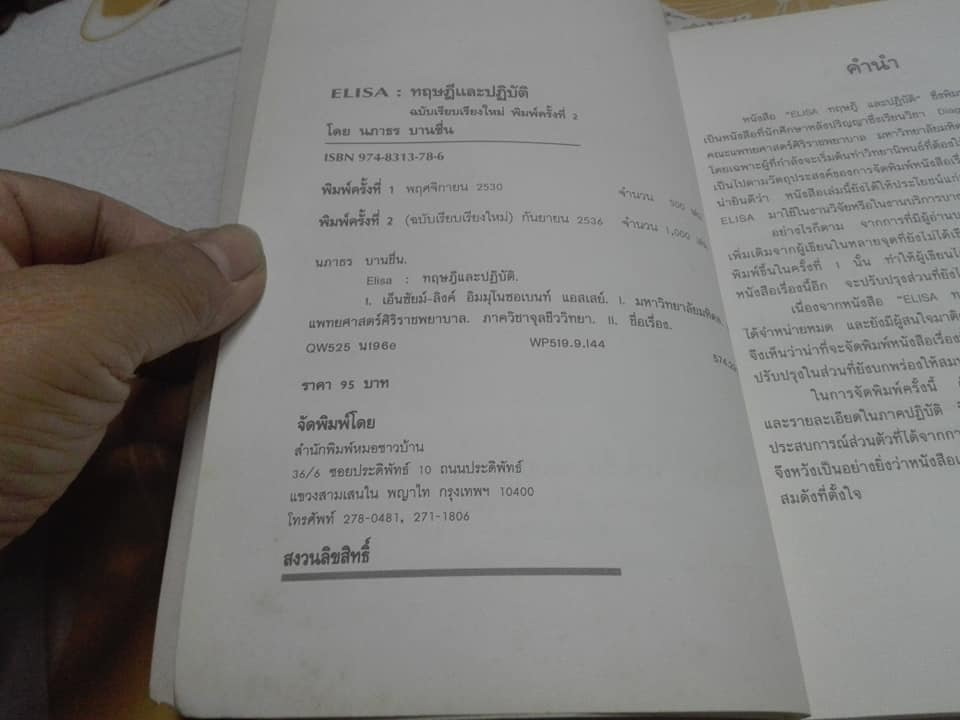 ELISA : ทฤษฎีและปฏิบัติ
ฉบับเรียบเรียงใหม่ พิมพ์ครั้งที่ 2
โดย นภาธร บานชื่น
ISBN 974-8313-78-6
พิมพ์ครั้งที่ 1 พฤศจิกายน 2530 จำนวน 500 เล่ม
พิมพ์ครั้งที่ 2 (ฉบับเรียบเรียงใหม่) กันยายน 2536 จำนวน 1,000 เล่ม
นภาธร บานชื่น.
Elisa : ทฤษฎีและปฏิบัติ.
1. เอ็นซัยม์-ลิงค์ อิมมูโนซอเบนท์ แอสเสย์. I. มหาวิทยาลัยมหิดล.
แพทยศาสตร์ศิริราชพยาบาล. ภาควิชาจุลชีววิทยา. II. ชื่อเรื่อง.
QW525 น196e WP519.9.I44
ราคา 95 บาท
จัดพิมพ์โดย
สำนักพิมพ์หมอชาวบ้าน
36/6 ซอยประดิพัทธ์ 10 ถนนประดิพัทธ์
แขวงสามเสนใน พญาไท กรุงเทพฯ 10400
โทรศัพท์ 278-0481, 271-1806
สงวนลิขสิทธิ์
คำนำ
หนังสือ "ELISA ทฤษฎี และปฏิบัติ" ซึ่งพิม
เป็นหนังสือที่นักศึกษาหลังปริญญาซึ่งเรียนวิชา Diag
คณะแพทยศาสตร์ศิริราชพยาบาล มหาวิทยาลัยมหิด
โดยเฉพาะผู้ที่กำลังจะเริ่มต้นทำวิทยานิพนธ์ที่ต้องใ
เป็นไปตามวัตถุประสงค์ของการจัดพิมพ์หนังสือเรื่
น่ายินดีว่า หนังสือเล่มนี้ยังได้ให้ประโยชน์แก่
ELISA มาใช้ในงานวิจัยหรือในงานบริการบาง
อย่างไรก็ตาม จากการที่มีผู้อ่านบา
เพิ่มเติมจากผู้เขียนในหลายจุดที่ยังไม่ได้เขี
พิมพ์ขึ้นในครั้งที่ 1 นั้น ทำให้ผู้เขียนไ
หนังสือเรื่องนี้อีก จะปรับปรุงส่วนที่ยังไ
เนื่องจากหนังสือ "ELISA ท
ได้จำหน่ายหมด และยังมีผู้สนใจมาติ
จึงเห็นว่าน่าที่จะจัดพิมพ์หนังสือเรื่อง
ปรับปรุงในส่วนที่ยังบกพร่องให้สม
ในการจัดพิมพ์ครั้งนี้
และรายละเอียดในภาคปฏิบัติ
ประสบการณ์ส่วนตัวที่ได้จากกา
จึงหวังเป็นอย่างยิ่งว่าหนังสือเ
สมดังที่ตั้งใจ